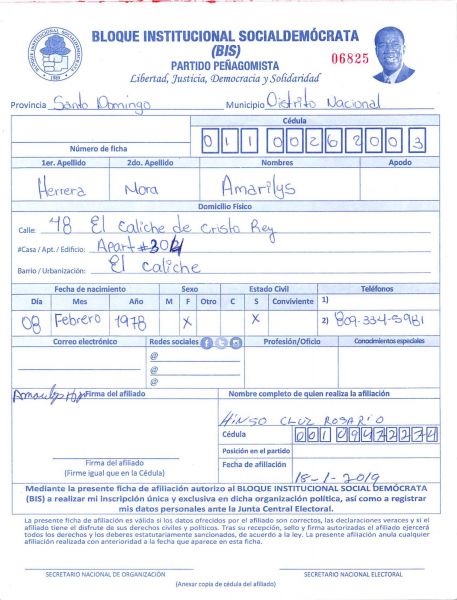 BLOQUE INSTITUCIONAL SOCIALDEMÓCRATA
(BIS)
PARTIDO PEÑAGOMISTA
06825
Libertad, Justicia, Democracia y Solidaridad
Provincia Santo Domingo Municipio Distrito Nacional
Cédula
Número de ficha 0 1 1 0 0 2 6 2 0 0 3
1er. Apellido 2do. Apellido Nombres Apodo
Herrera Mora Amarilys
Domicilio Físico
Calle: 48 El Caliche de Cristo Rey
#Casa / Apt. / Edificio: Apart #
Barrio / Urbanización: El Caliche
Fecha de nacimiento Sexo Estado Civil Teléfonos
Día Mes Año M F Otro C S Conviviente 1)
08 Febrero 1978 X X 2) 809-334-5981
Correo electrónico Redes sociales Profesión/Oficio Conocimientos especiales
@
@
@
Firma del afiliado Nombre completo de quien realiza la afiliación
HINSO CLUZ ROSARIO
Cédula 0 0 1 0 9 4 7 2 2 7 4
Posición en el partido
Firma del afiliado
(Firme igual que en la Cédula)
Fecha de afiliación 18-1-2019
Mediante la presente ficha de afiliación autorizo al BLOQUE INSTITUCIONAL SOCIAL DEMÓCRATA
(BIS) a realizar mi inscripción única y exclusiva en dicha organización política, así como a registrar
mis datos personales ante la Junta Central Electoral.
La presente ficha de afiliación es válida si los datos ofrecidos por el afiliado son correctos, las declaraciones veraces y si el
afiliado tiene el disfrute de sus derechos civiles y políticos. Tras su recepción, sello y firma autorizadas el afiliado ejercerá
todos los derechos y los deberes estatutariamente sancionados, de acuerdo a la ley. La presente afiliación anula cualquier
afiliación realizada con anterioridad a la fecha que aparece en esta ficha.
SECRETARIO NACIONAL DE ORGANIZACIÓN SECRETARIO NACIONAL ELECTORAL
(Anexar copia de cédula del afiliado)